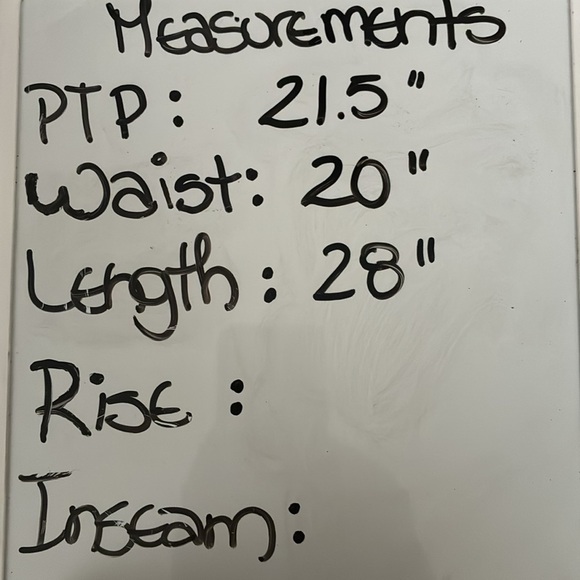 Measurements
PTP: 21.5"
Waist: 20"
Length: 28"
Rise:
Inseam: